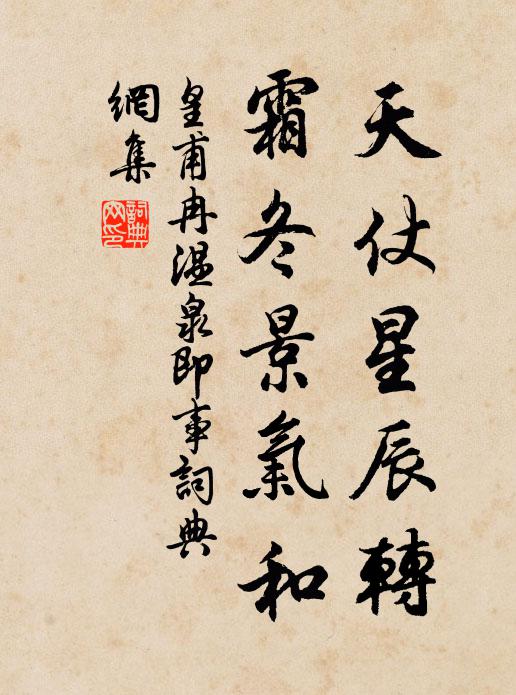 天仗星辰轉
霜冬景氣和
皇甫冉溫泉即事詞典
網集
詞典
网印